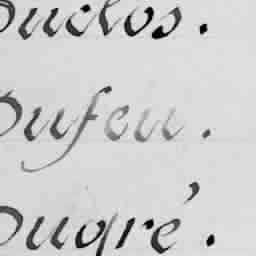 Duclos.
Dufeu.
Dugré.